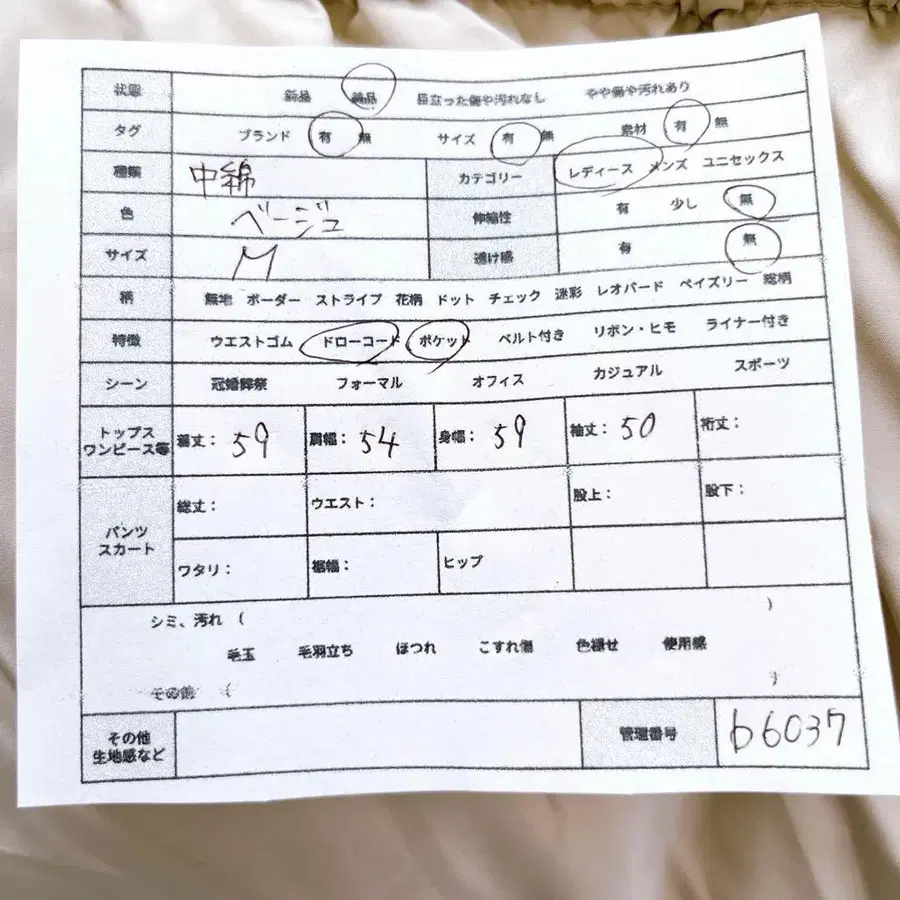 状態 新品 美品 目立った傷や汚れなし やや傷や汚れあり
タグ ブランド 有 無 サイズ 有 無 素材 有 無
種類 中綿 カテゴリー レディース メンズ ユニセックス
色 ベージュ 伸縮性 有 少し 無
サイズ M 透け感 有 無
柄 無地 ボーダー ストライプ 花柄 ドット チェック 迷彩 レオパード ペイズリー 総柄
特徴 ウエストゴム ドローコード ポケット ベルト付き リボン・ヒモ ライナー付き
シーン 冠婚葬祭 フォーマル オフィス カジュアル スポーツ
トップス
ワンピース等 着丈: 59 肩幅: 54 身幅: 59 袖丈: 50 裄丈:
パンツ
スカート
総丈: ウエスト: 股上: 股下:
ワタリ: 裾幅: ヒップ
シミ、汚れ ( )
毛玉 毛羽立ち ほつれ こすれ傷 色褪せ 使用感
その他 ( )
その他
生地感など
管理番号 b6037